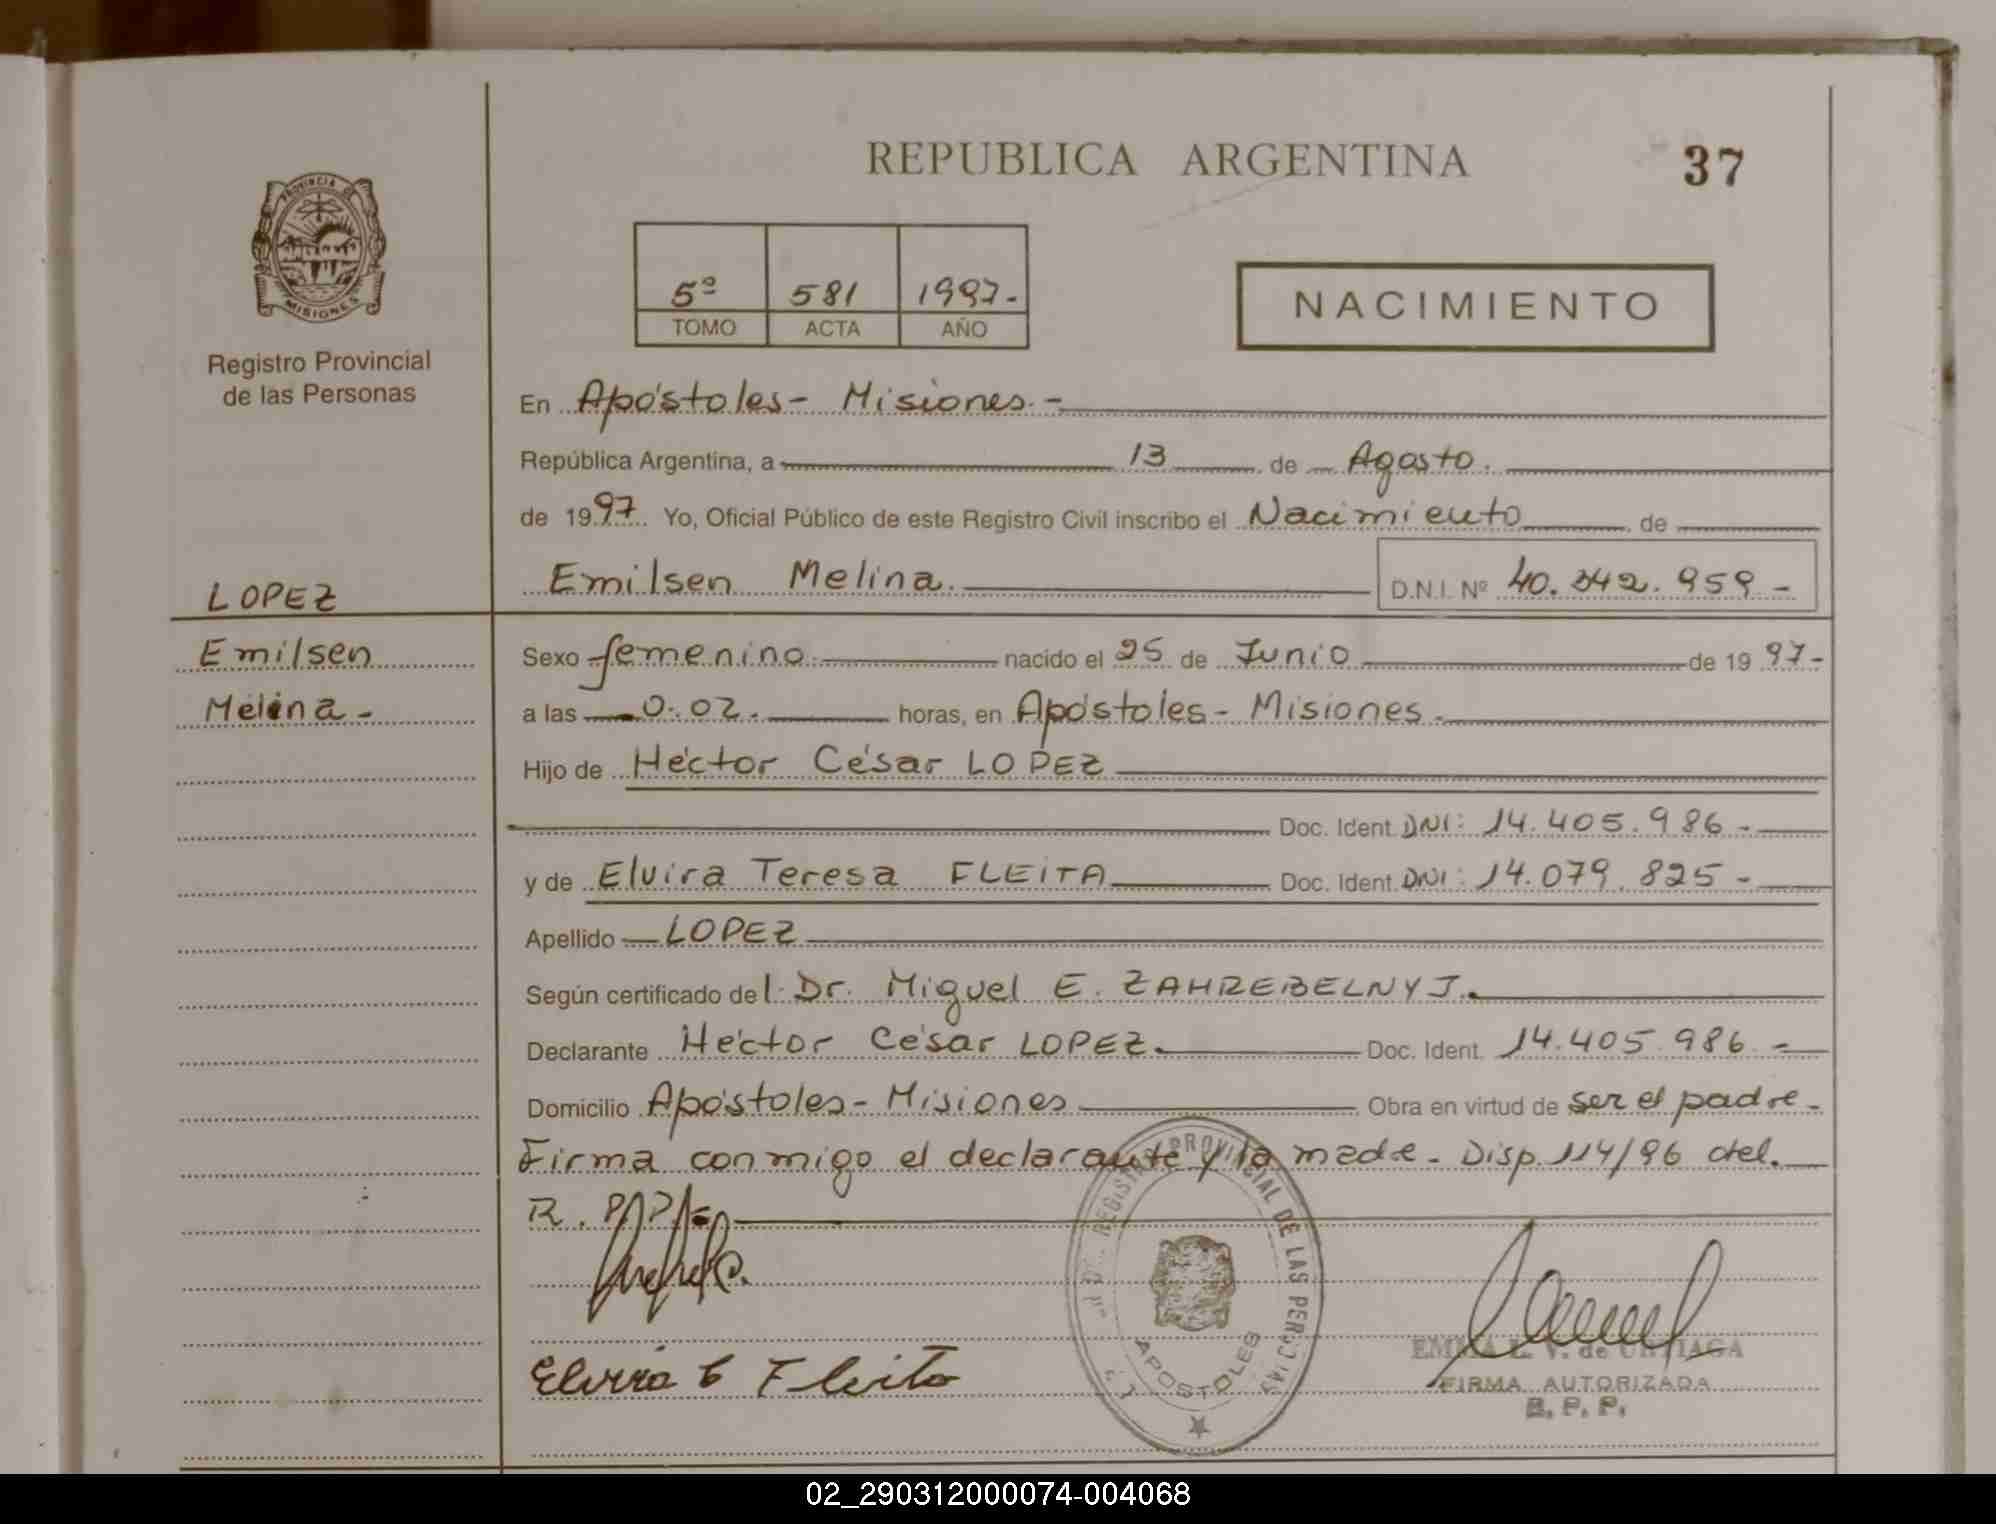 REPUBLICA ARGENTINA
37
PROVINCIA DE
MISIONES
Registro Provincial
de las Personas
5º 581 1997-
TOMO ACTA AÑO
NACIMIENTO
En Apóstoles- Misiones.-
República Argentina, a 13 de Agosto.
de 1997. Yo, Oficial Público de este Registro Civil inscribo el Nacimiento de
LOPEZ
Emilsen
Melina-
Emilsen Melina. D.N.I. Nº 40.342.959-
Sexo femenino. nacido el 25 de Junio de 1997-
a las 0:02. horas, en Apóstoles- Misiones.
Hijo de Héctor César LOPEZ
Doc. Ident. DNI: 14.405.986-
y de Elvira Teresa FLEITA Doc. Ident. DNI: 14.079.825-
Apellido LOPEZ
Según certificado del. Dr. Miguel E. ZAHREBELNYJ.
Declarante Héctor César LOPEZ. Doc. Ident. 14.405.986-
Domicilio Apóstoles- Misiones Obra en virtud de ser el padre-
Firma conmigo el declarante y la madre- Disp. 114/96 del.
R.P.P.-
REGISTRO PROVINCIAL DE LAS PERSONAS
APOSTOLES
Elvira T Fleita
EMMA L. V. de URTIAGA
FIRMA AUTORIZADA
R. P. P.
02_290312000074-004068